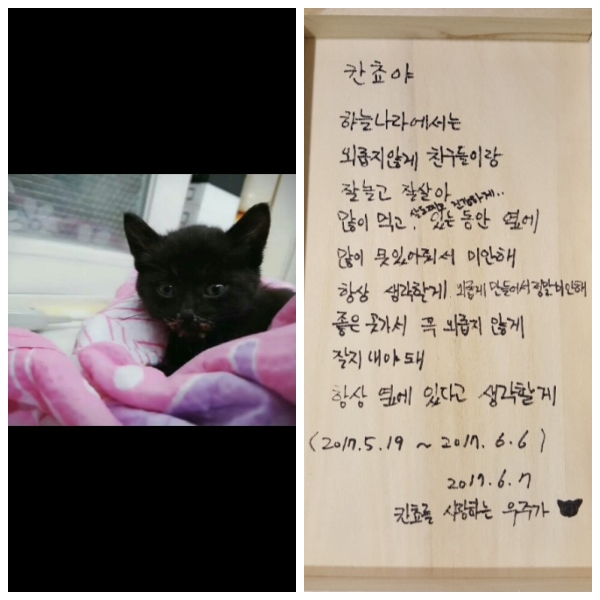 칸쵸야
하늘나라에서는
외롭지않게 친구들이랑
잘놀고 잘살아
많이 먹고, 있는동안 옆에
많이 못있어줘서 미안해
항상 생각할게 외롭게 만들어서 정말 미안해
좋은 곳가서 꼭 외롭지 않게
잘지내야돼
항상 옆에 있다고 생각할게
(2017.5.19 ~ 2017.6.6)
2017.6.7
칸쵸를 사랑하는 우주가